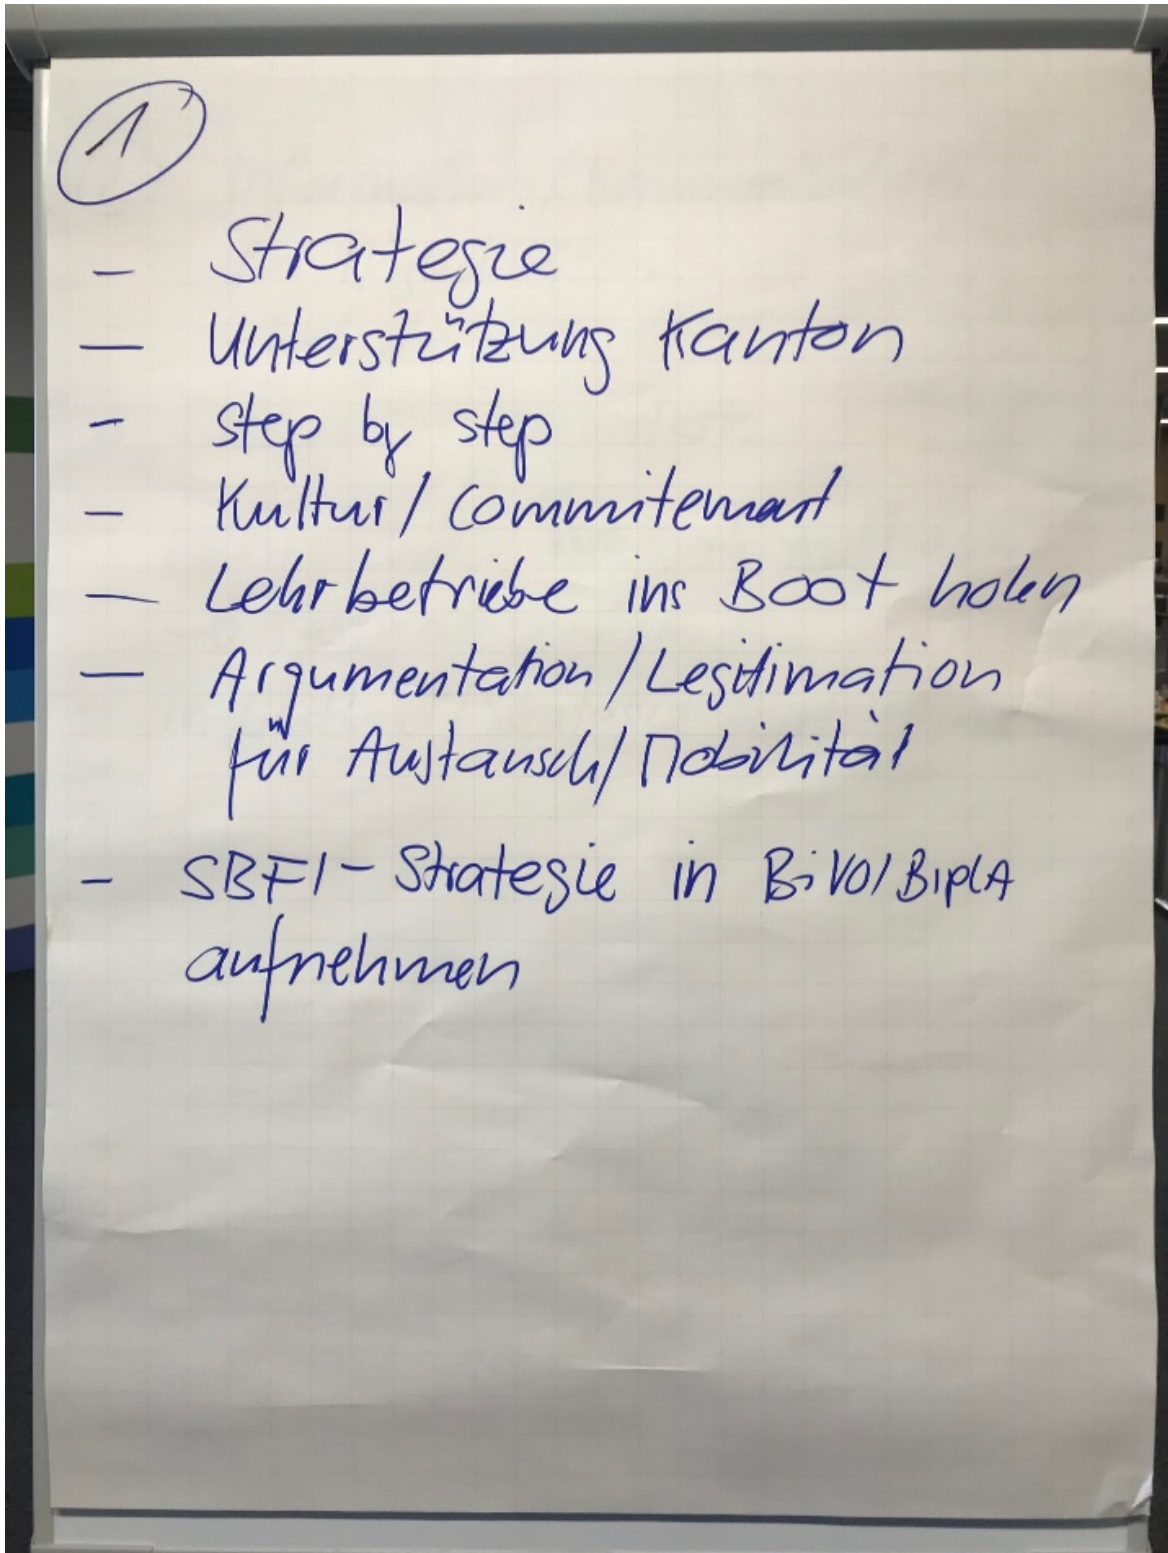 1
- Strategie
- Unterstützung Kanton
- step by step
- Kultur / Commitement
- Lehrbetriebe ins Boot holen
- Argumentation / Legitimation
für Austausch / Mobilität
- SBFI - Strategie in BiVO / BiplA
aufnehmen